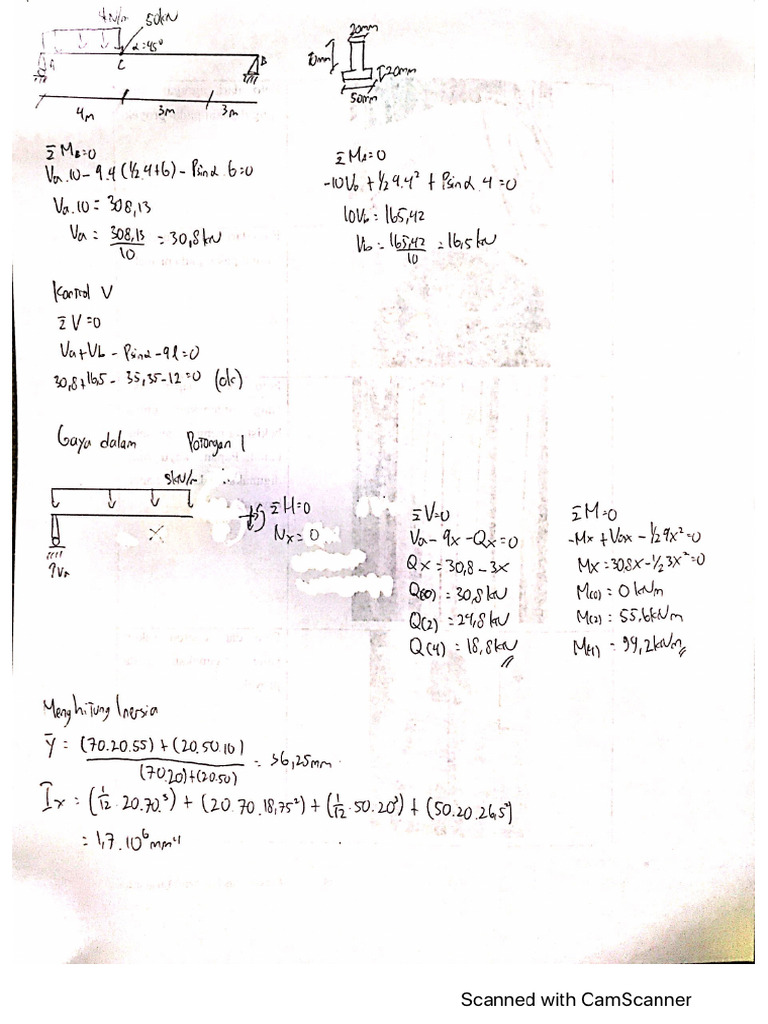 4kN/m 50kN
α=45°
A C B
4m 3m 3m
20mm
20mm
50mm
Σ MB=0
Va.10 - q.4 (1/2.4+6) - Psinα.6=0
Va.10 = 308,13
Va = 308,13/10 = 30,8kN
Σ MA=0
-10Vb + 1/2 q.4² + Psinα.4=0
10Vb = 165,42
Vb = 165,42/10 = 16,5kN
Kontrol V
Σ V=0
Va+Vb - Psinα - ql=0
30,8+16,5 - 35,35-12=0 (ok)
Gaya dalam Potongan 1
3kN/m
x
Va
Σ H=0
Nx = 0
Σ V=0
Va - qx - Qx=0
Qx = 30,8 - 3x
Q(0) = 30,8kN
Q(2) = 24,8kN
Q(4) = 18,8kN
Σ M=0
-Mx + Vax - 1/2 qx²=0
Mx=30,8x-1/2 3x²=0
M(0) = 0 kNm
M(2) = 55,6kNm
M(4) = 99,2kNm
Menghitung Inersia
ȳ = (70.20.55)+(20.50.10)/(70.20)+(20.50) = 36,25mm
Ix = (1/12.20.70³) + (20.70.18,75²) + (1/12.50.20³) + (50.20.26,5²)
= 1,7.10⁶mm⁴
Scanned with CamScanner